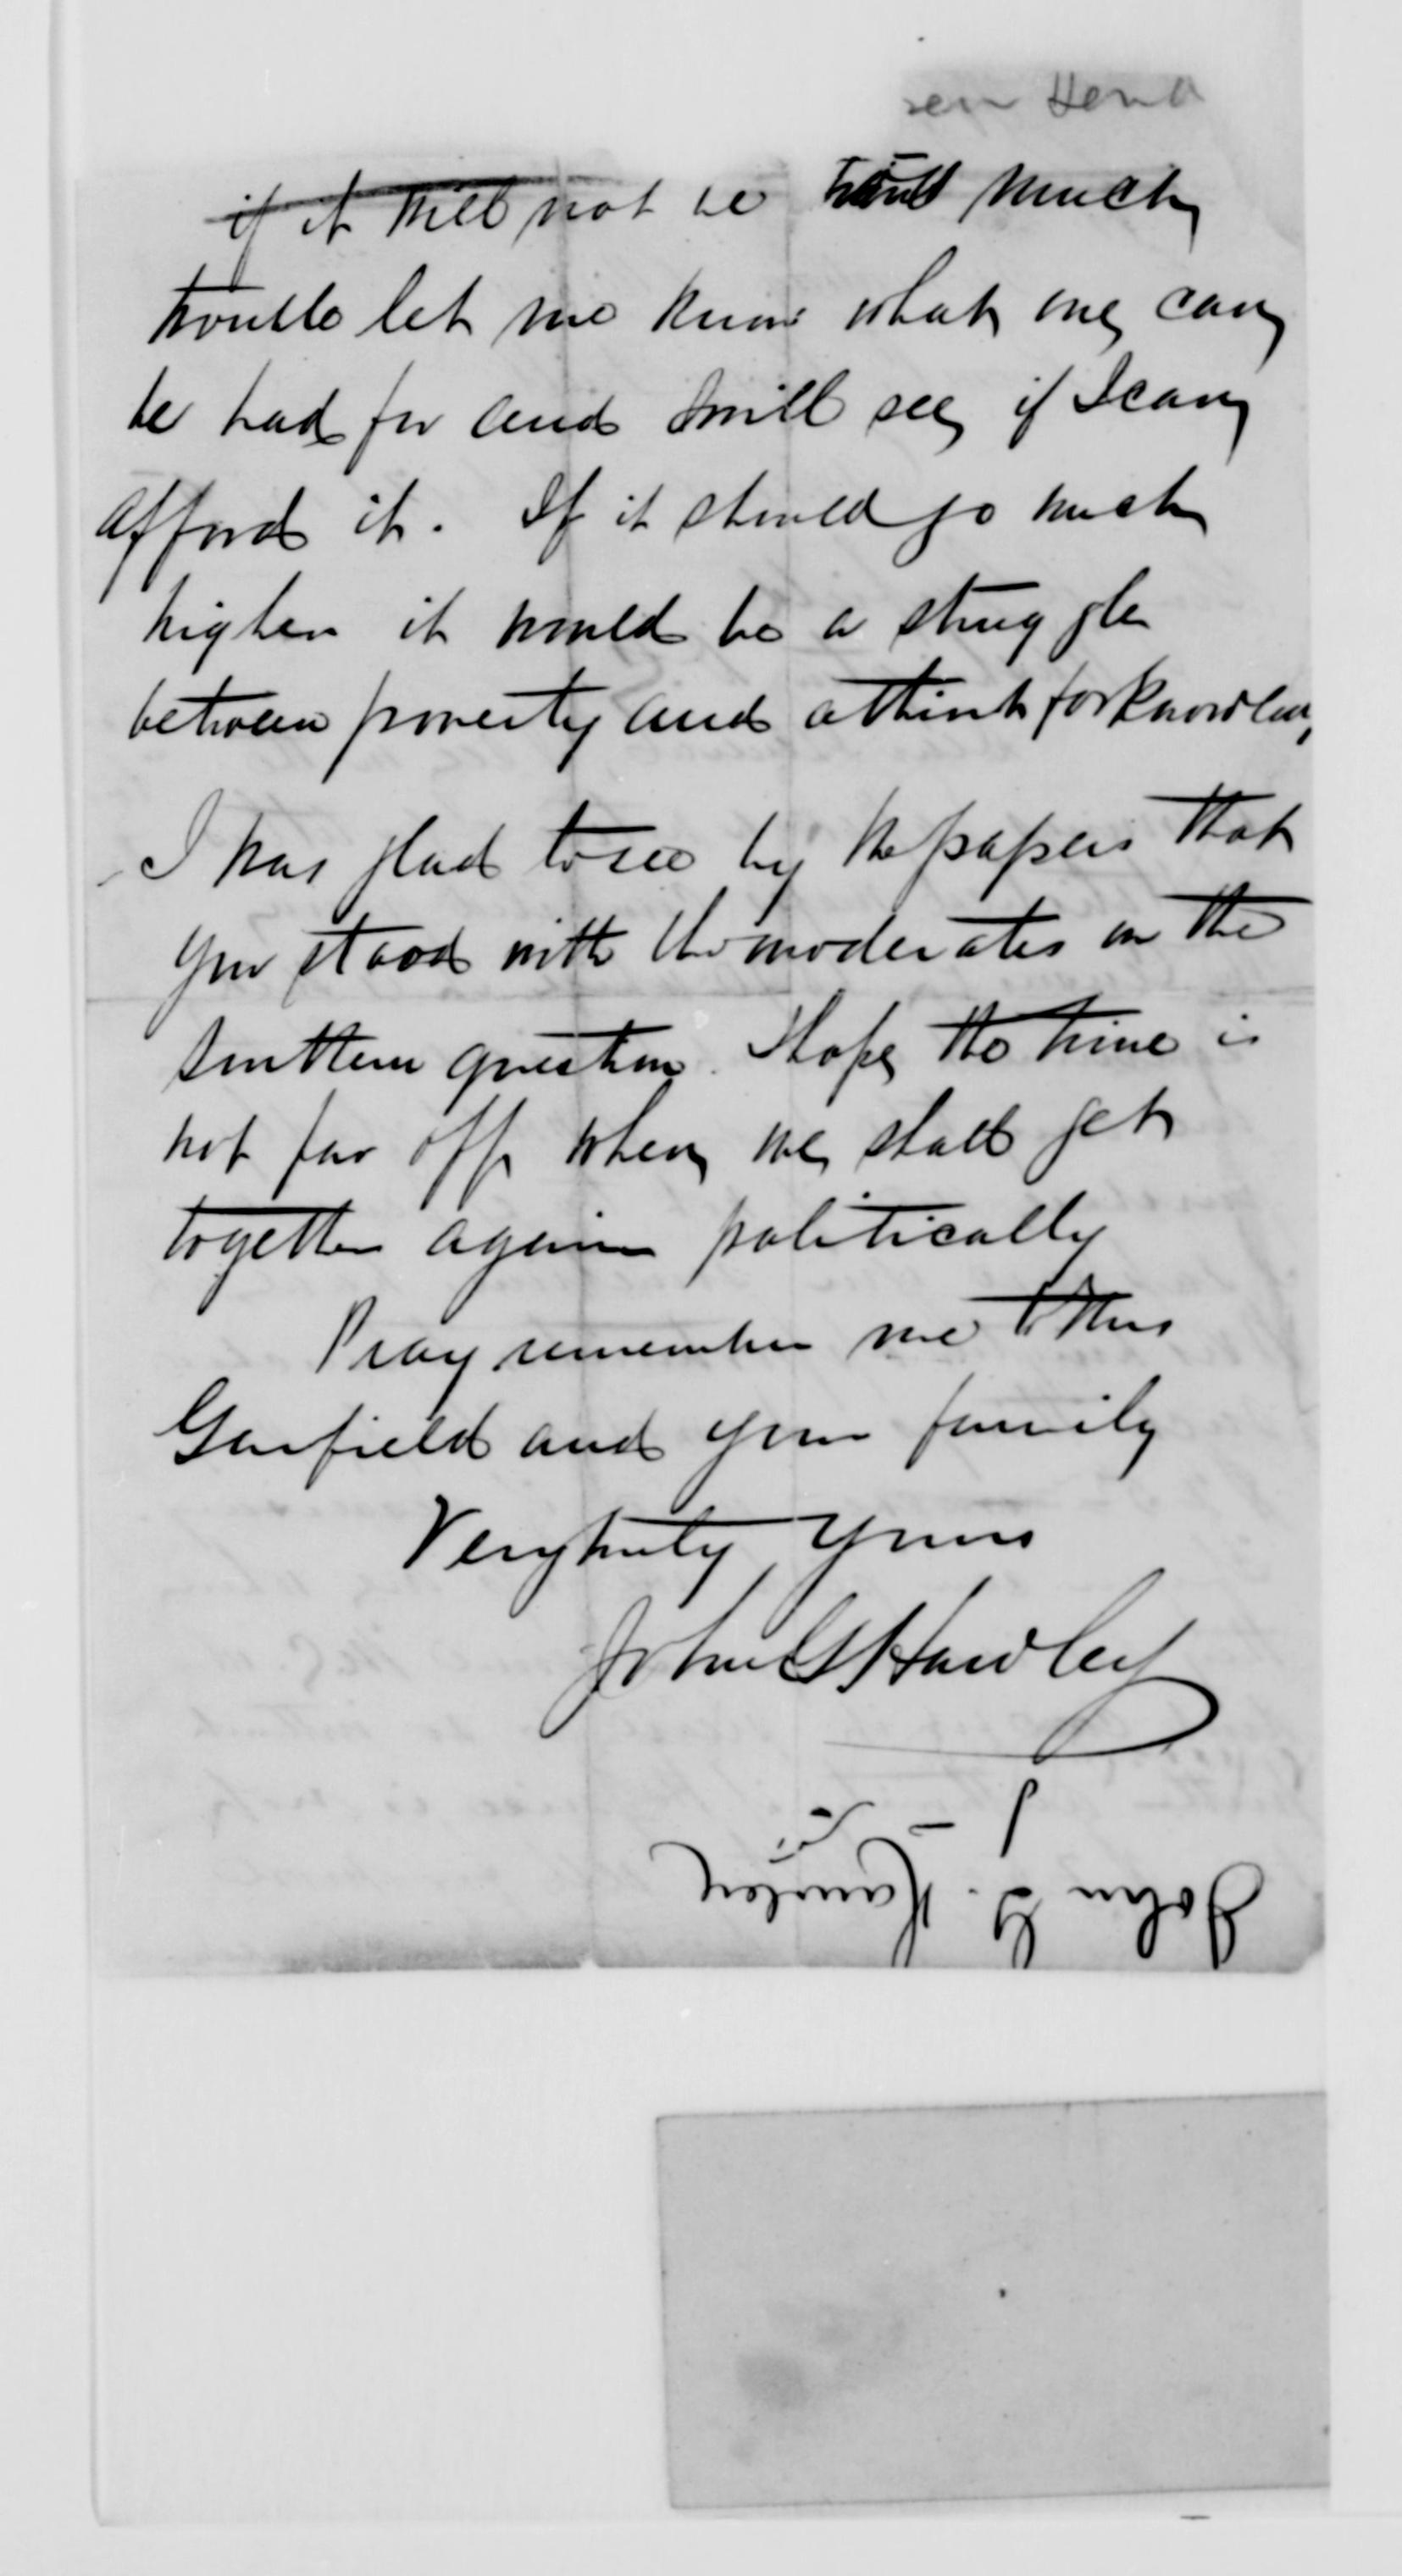 if it will not be too much
trouble let me know what one can
be had for and I will see if I can
afford it. If it should go much
higher it would be a struggle
between poverty and a thirst for knowledge
I was glad to see by the papers that
you stood with the moderates on the
Southern question. I hope the time is
not far off when we shall get
together again politically
Pray remember me to Mrs
Garfield and your family
Very truly yours
John G Hawley
John G. Hawley